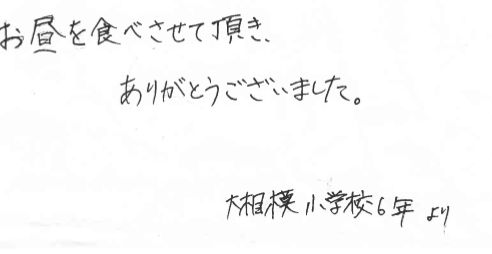 お昼を食べさせて頂き、
ありがとうございました。
大相模小学校6年より